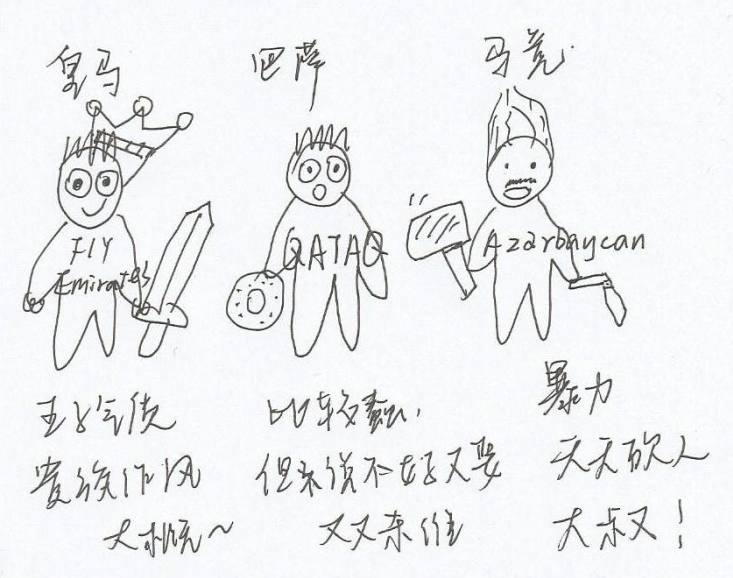 皇马
巴萨
马竞.
FlY
Emirates
QATAQ
Azarbaycan
王子气质
贵族作风
大概~
比较蠢,
但
又要
暴力
天天砍人
大叔!